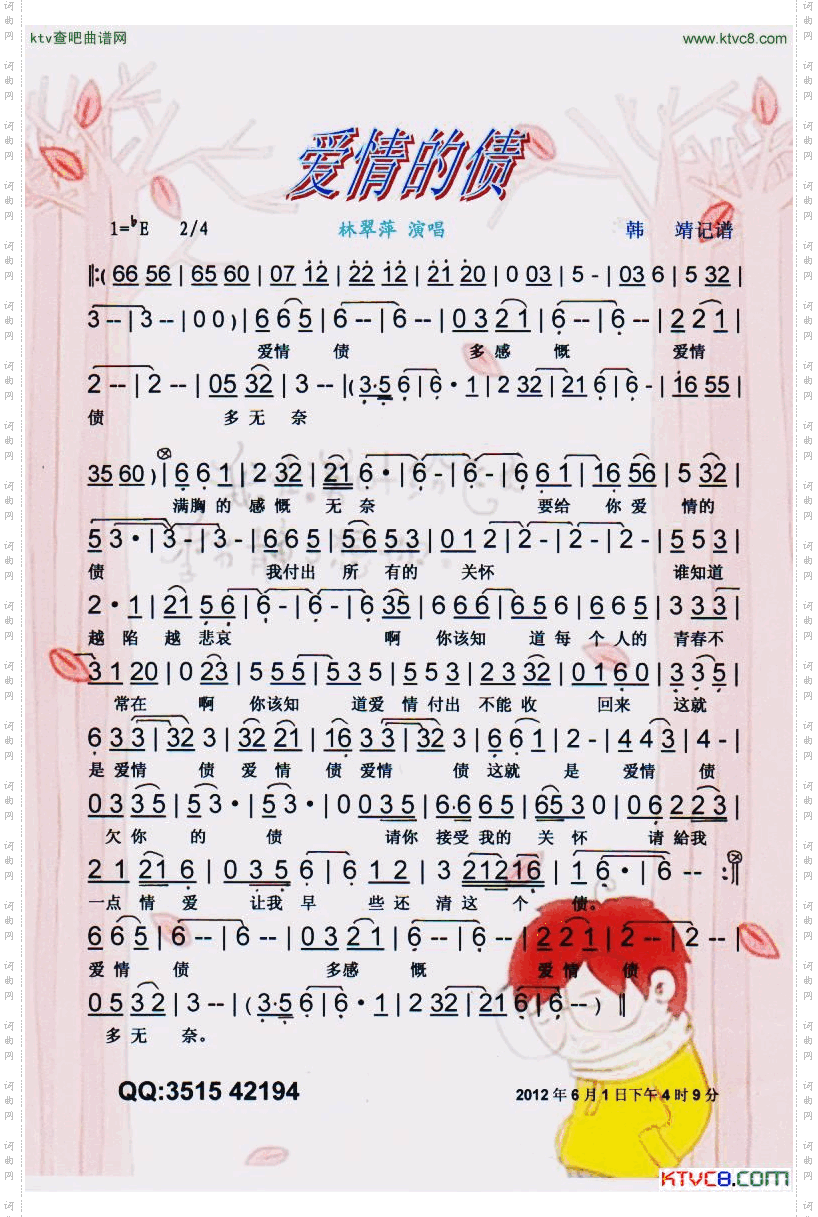 ktv查吧曲谱网 www.ktvc8.com
爱情的债
1=♭E 2/4 林翠萍 演唱 韩 靖记谱
‖:( 66 56 | 65 60 | 07 12 | 22 12 | 21 20 | 0 03 | 5 - | 03 6 | 5 32 |
3 -- | 3 -- | 0 0 ) | 6 6 5 | 6 -- | 6 -- | 0 3 2 1 | 6 -- | 6 -- | 2 2 1 |
爱情 债 多 感 慨 爱情
2 -- | 2 -- | 05 32 | 3 -- |( 3·5 6 | 6 · 1 | 2 32 | 21 6 | 6 - | 16 55 |
债 多 无 奈
35 60 ) | 6 6 1 | 2 32 | 21 6 · | 6 - | 6 - | 6 6 1 | 16 56 | 5 32 |
满胸 的 感 慨 无 奈 要给 你 爱 情的
5 3 · | 3 - | 3 - | 6 6 5 | 5 6 5 3 | 0 1 2 | 2 - | 2 - | 2 - | 5 5 3 |
债 我付出 所 有的 关怀 谁知道
2 · 1 | 21 5 6 | 6 - | 6 - | 6 35 | 6 6 6 | 6 5 6 | 6 6 5 | 3 3 3 |
越 陷 越 悲哀 啊 你该知 道 每 个 人的 青春不
3 1 20 | 0 23 | 5 5 5 | 5 3 5 | 5 5 3 | 2 3 32 | 0 1 6 0 | 3 3 5 |
常在 啊 你该知 道爱 情 付出 不能 收 回来 这就
6 3 3 | 32 3 | 32 21 | 16 3 3 | 32 3 | 6 6 1 | 2 - | 4 4 3 | 4 - |
是 爱情 债 爱 情 债 爱情 债 这就 是 爱情 债
0 3 3 5 | 5 3 · | 5 3 · | 0 0 3 5 | 6·6 6 5 | 65 3 0 | 0 6 2 2 3 |
欠 你 的 债 请你 接受 我的 关 怀 请 給我
2 1 21 6 | 0 3 5 6 | 6 1 2 | 3 21216 | 1 6 · | 6 -- :‖
一点 情 爱 让我 早 些 还 清 这 个 债。
6 6 5 | 6 -- | 6 -- | 0 3 2 1 | 6 -- | 6 -- | 2 2 1 | 2 -- | 2 -- |
爱 情 债 多感 慨 爱 情 债
0 5 3 2 | 3 -- | ( 3·5 6 | 6 · 1 | 2 32 | 21 6 | 6 -- ) ‖
多 无 奈。
QQ:3515 42194 2012 年 6 月 1 日下午 4 时 9 分
KTVC8.COM